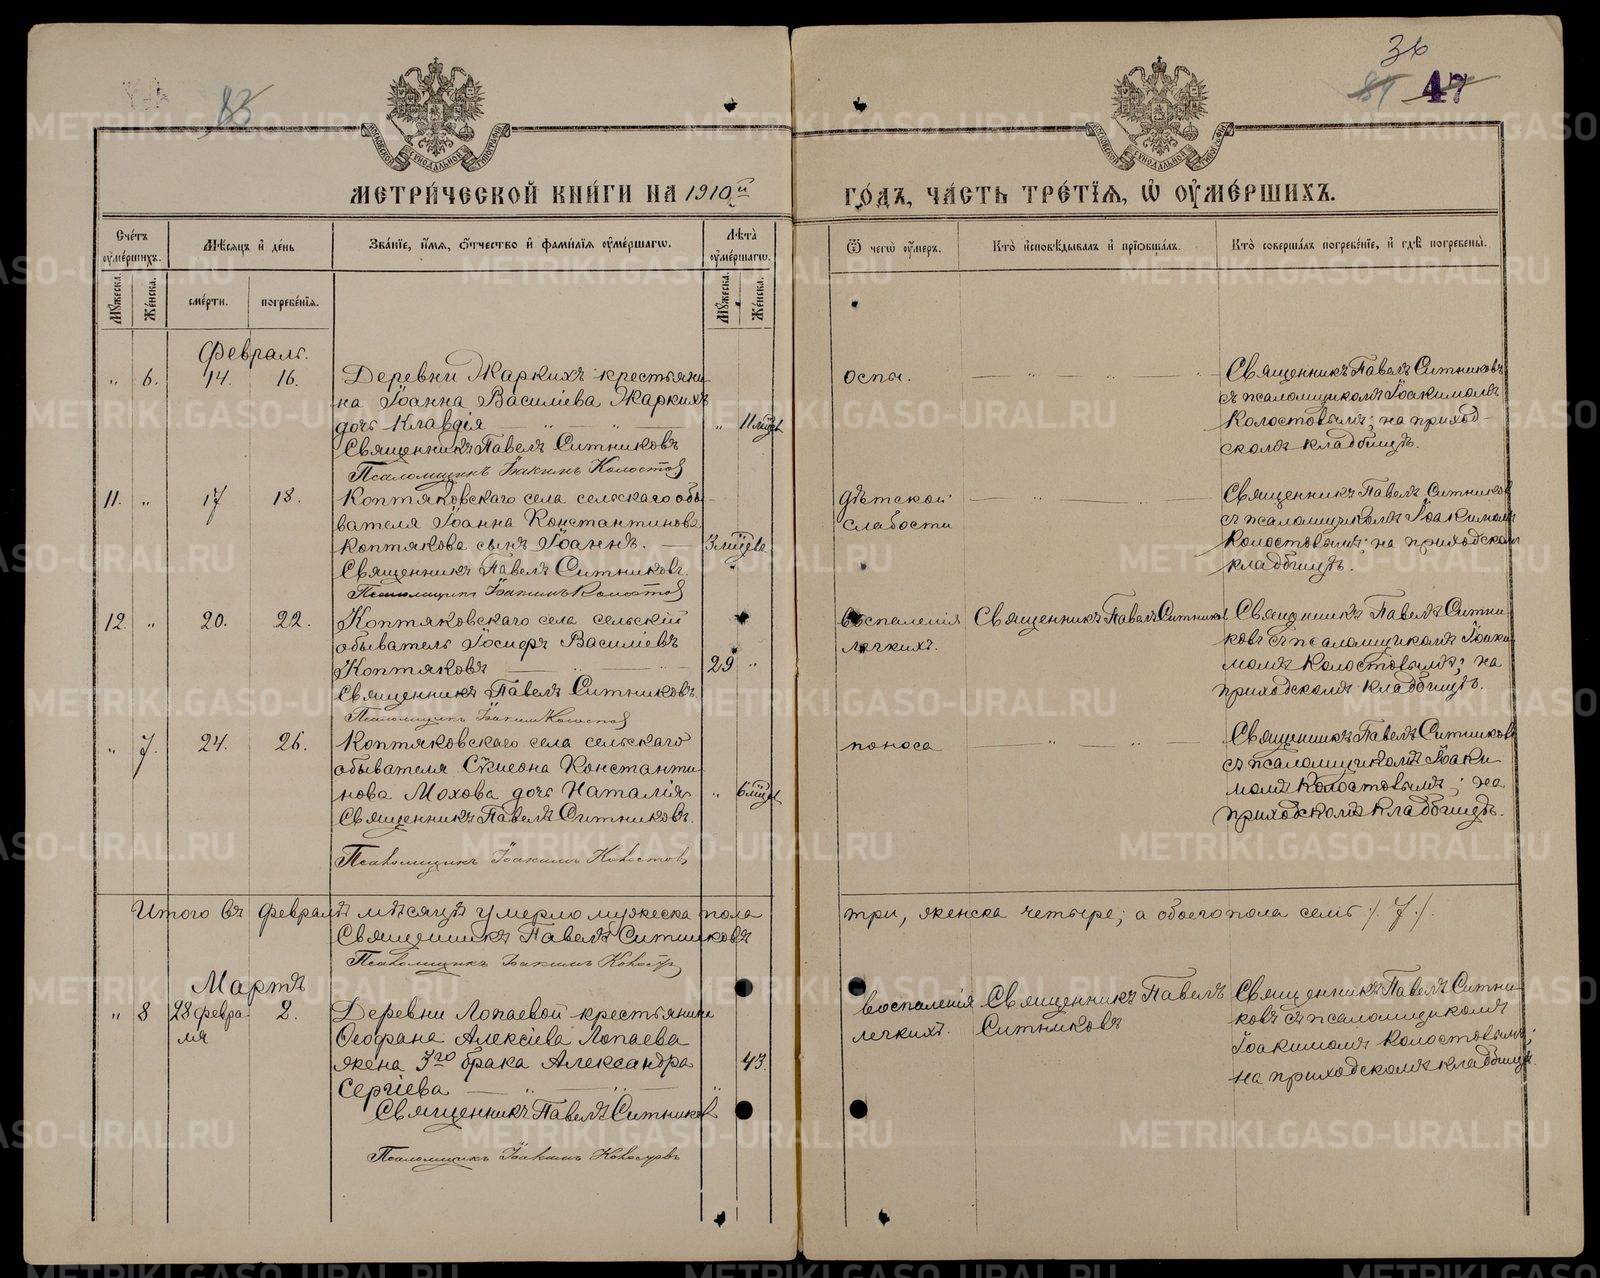 36
83
87 47
МЕТРИ́ЧЕСКОЙ КНИ́ГИ НА 1910й
ГО́ДЪ, ЧА́СТЬ ТРЕ́ТЇЯ, Ѽ ОУ҆МЕ́РШИХЪ.
Сче́тъ оу҆ме́ршихъ.
Мѣ́сяцъ и҆ де́нь
Зва́нїе, и҆́мя, ѻ҆́тчество и҆ фами́лїя оу҆ме́ршагѡ.
Лѣ́та̀ оу҆ме́ршагѡ.
Ѿ чегѡ̀ оу҆́меръ.
Кто̀ и҆сповѣ́дывалъ и҆ прїѡбща́лъ.
Кто̀ соверша́лъ погребе́нїе, и҆ гдѣ̀ погребены̀.
Мꙋ́жеска.
Же́нска.
сме́рти.
погребе́нїя.
Мꙋ́жеска.
Же́нска.
Февраль.
„ 6. 14. 16. Деревни Жаркихъ крестьяни-
на Іоанна Василіева Жаркихъ
дочь Клавдія „ 11 мѣцевъ
Священникъ Павелъ Ситниковъ
Псаломщикъ Іоакимъ Колостовъ
оспы.
Священникъ Павелъ Ситниковъ
съ псаломщикомъ Іоакимомъ
Колостовымъ; на приход-
скомъ кладбищѣ.
11. „ 17 18. Коптяковскаго села сельскаго обы-
вателя Іоанна Константинова
Коптякова сынъ Іоаннъ. 3 мѣцевъ
Священникъ Павелъ Ситниковъ.
Псаломщикъ Іоакимъ Колостовъ
дѣтской
слабости
Священникъ Павелъ Ситников
съ псаломщикомъ Іоакимомъ
Колостовымъ; на приходском
кладбищѣ.
12. „ 20. 22. Коптяковскаго села сельскій
обыватель Іосифъ Василіевъ
Коптяковъ 29 „
Священникъ Павелъ Ситниковъ.
Псаломщикъ Іоакимъ Колостовъ
воспаленія
легкихъ.
Священникъ Павелъ Ситников
Священникъ Павелъ Ситни-
ковъ съ псаломщикомъ Іоаки-
момъ Колостовымъ; на
приходскомъ кладбищѣ.
„ 7. 24. 26. Коптяковскаго села сельскаго
обывателя Сѵмеона Константи-
нова Мохова дочь Наталія „ 6 мѣцев
Священникъ Павелъ Ситниковъ.
Псаломщикъ Іоакимъ Колостовъ
поноса
Священникъ Павелъ Ситников
съ псаломщикомъ Іоаки-
момъ Колостовымъ; на
приходскомъ кладбищѣ.
Итого въ февралѣ мѣсяцѣ умерло мужеска пола
три, женска четыре; а обоего пола семь ·/. 7 ./.
Священникъ Павелъ Ситниковъ
Псаломщикъ Іоакимъ Колостовъ
Мартъ
„ 8 28 февра- 2. Деревни Лопаевой крестьянина
ля
Ѳеофана Алексіева Лопаева
жена 3го брака Александра 43.
Сергіева
Священникъ Павелъ Ситников
Псаломщикъ Іоакимъ Колостовъ
воспаленія
легкихъ.
Священникъ Павелъ
Ситниковъ
Священникъ Павелъ Ситни-
ковъ съ псаломщикомъ
Іоакимомъ Колостовымъ;
на приходскомъ кладбищѣ.
METRIKI.GASO-URAL.RU